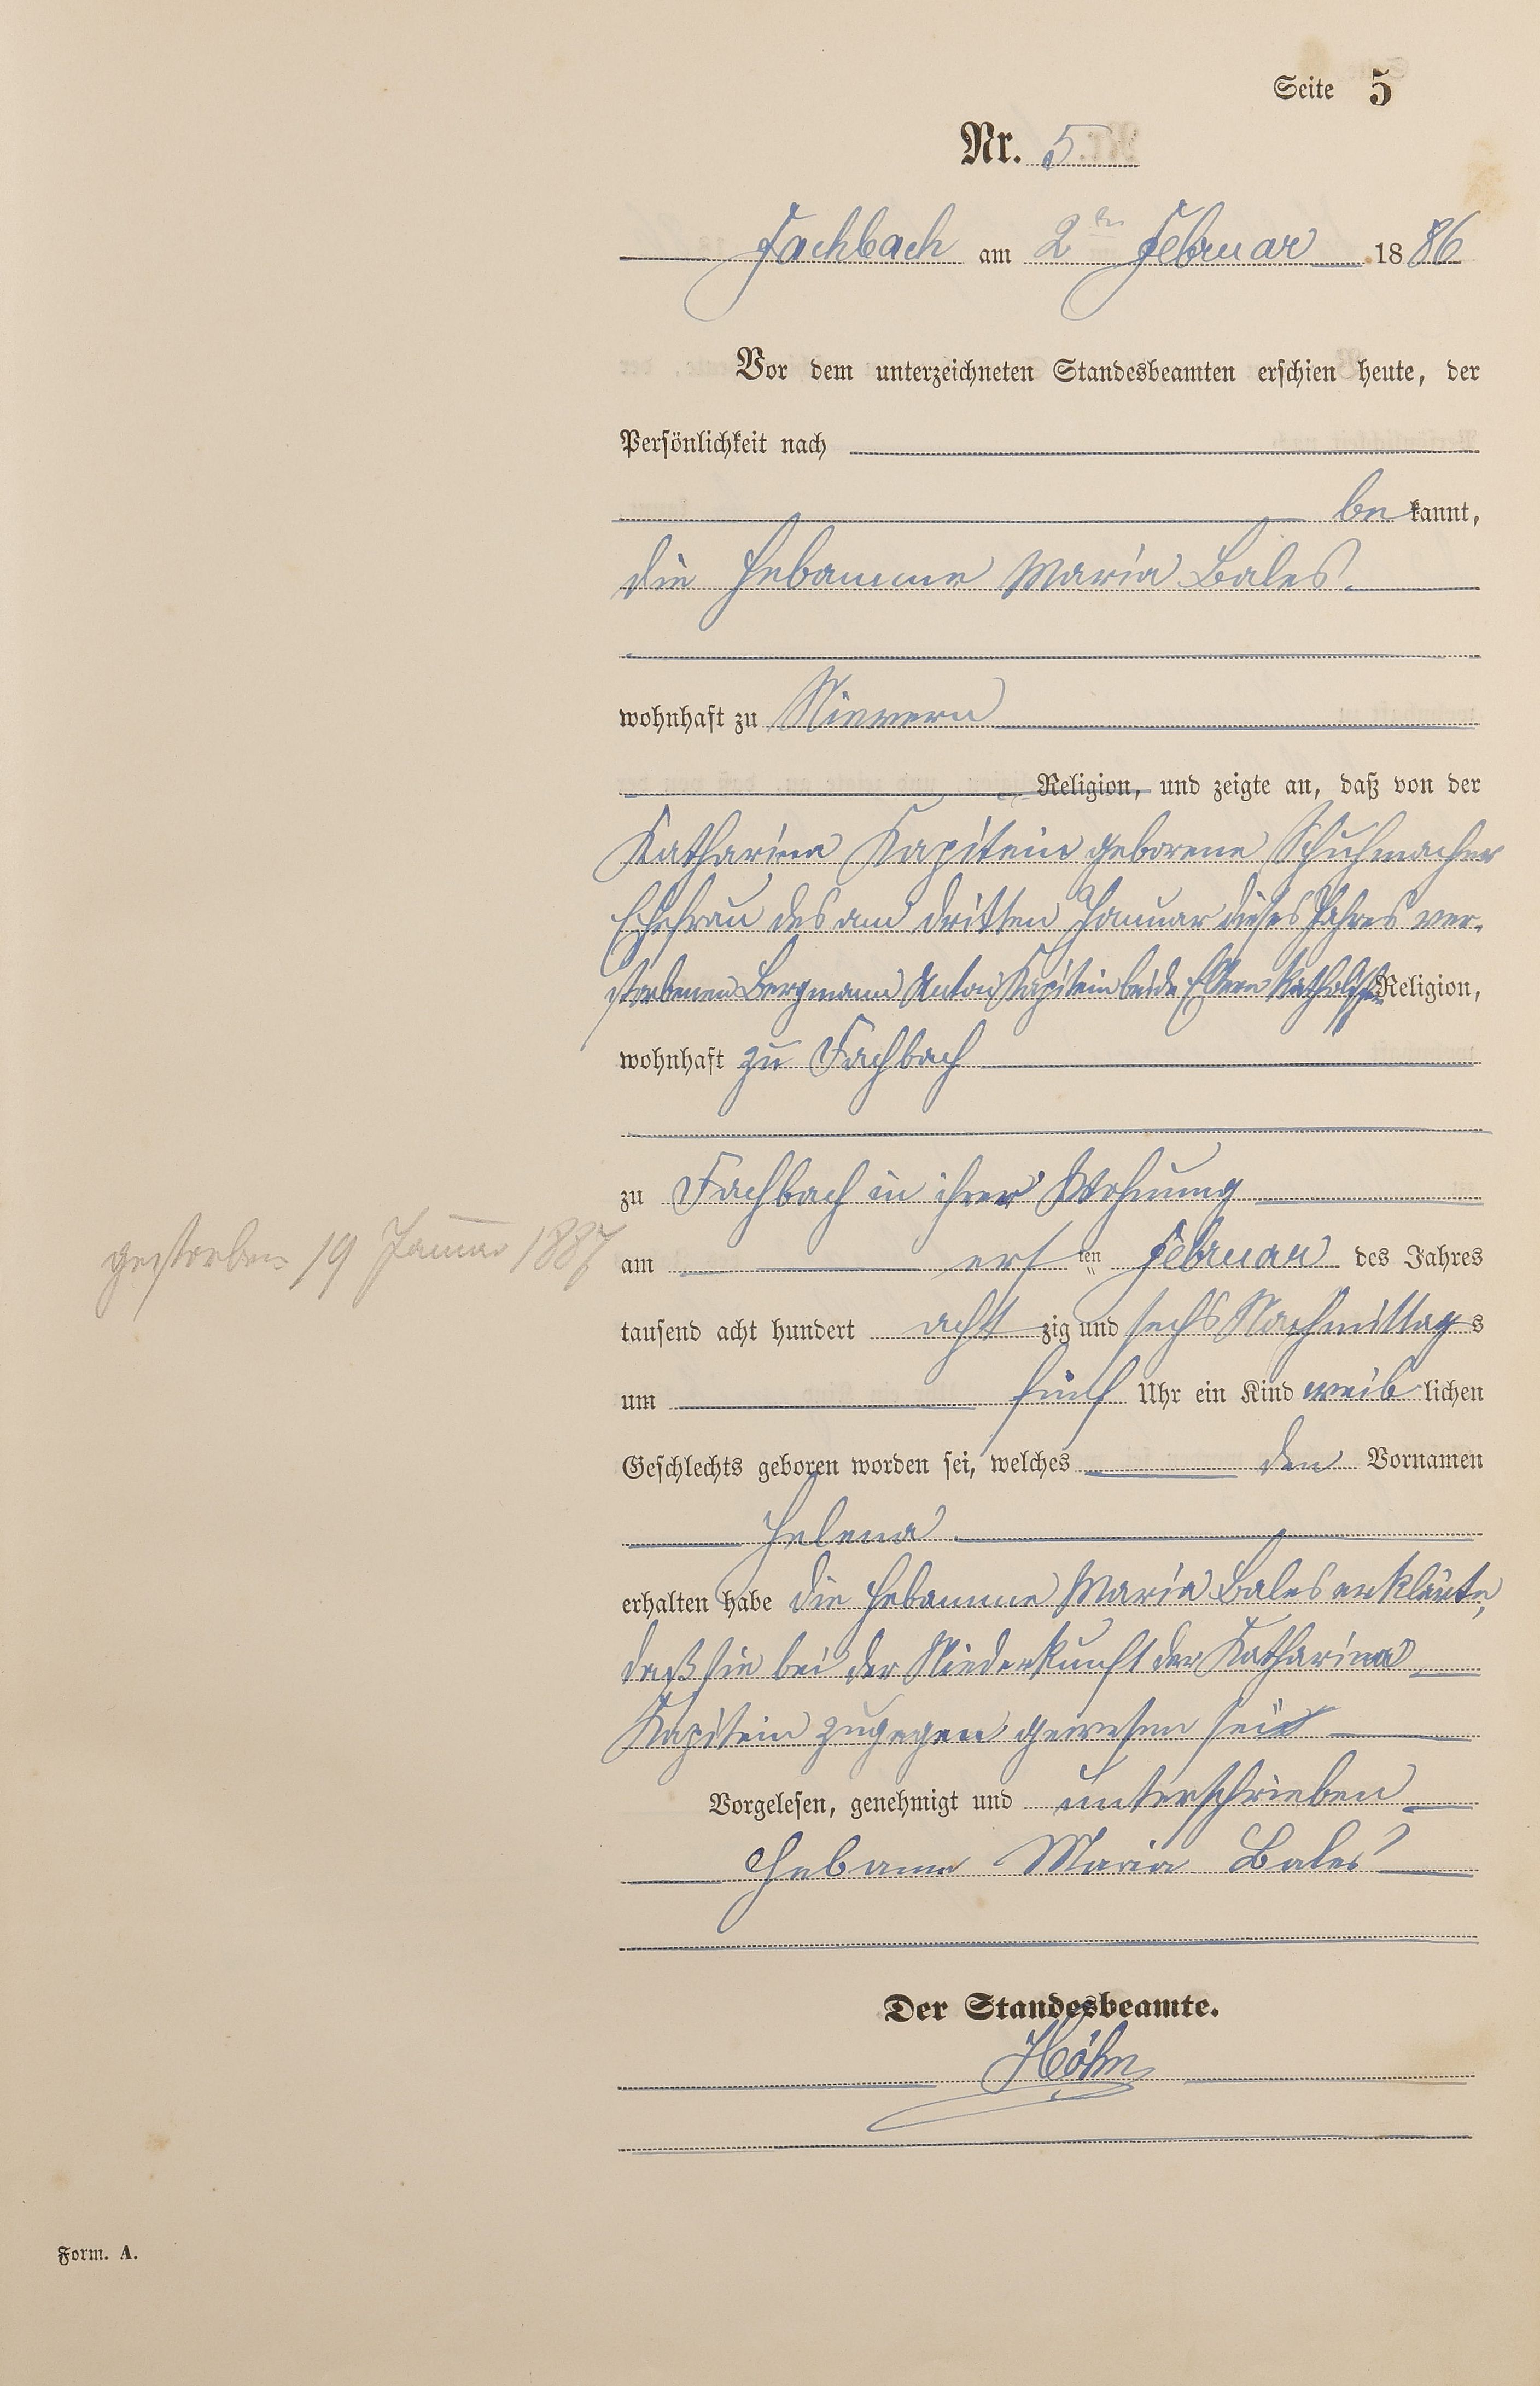 Seite 5
Nr. 5.
Fachbach am 2ten Februar 1886
Vor dem unterzeichneten Standesbeamten erschien heute, der
Persönlichkeit nach
bekannt,
die Hebamme Maria Bales
wohnhaft zu Nievern
Religion, und zeigte an, daß von der
Katharina Kapitein geborene Schuhmacher
Ehefrau des am dritten Januar dieses Jahres ver-
storbenen Bergmann Anton Kapitein beide Eltern katholischer Religion,
wohnhaft zu Fachbach
zu Fachbach in ihrer Wohnung
gestorben 19 Januar 1887
am ersten Februar des Jahres
tausend acht hundert achtzig und sechs Nachmittags
um fünf Uhr ein Kind weiblichen
Geschlechts geboren worden sei, welches den Vornamen
Helena
erhalten habe die Hebamme Maria Bales erklärte,
daß sie bei der Niederkunft der Katharina
Kapitein zugegen gewesen sei
Vorgelesen, genehmigt und unterschrieben
Hebamm Maria Bales
Der Standesbeamte.
Höhn
Form. A.